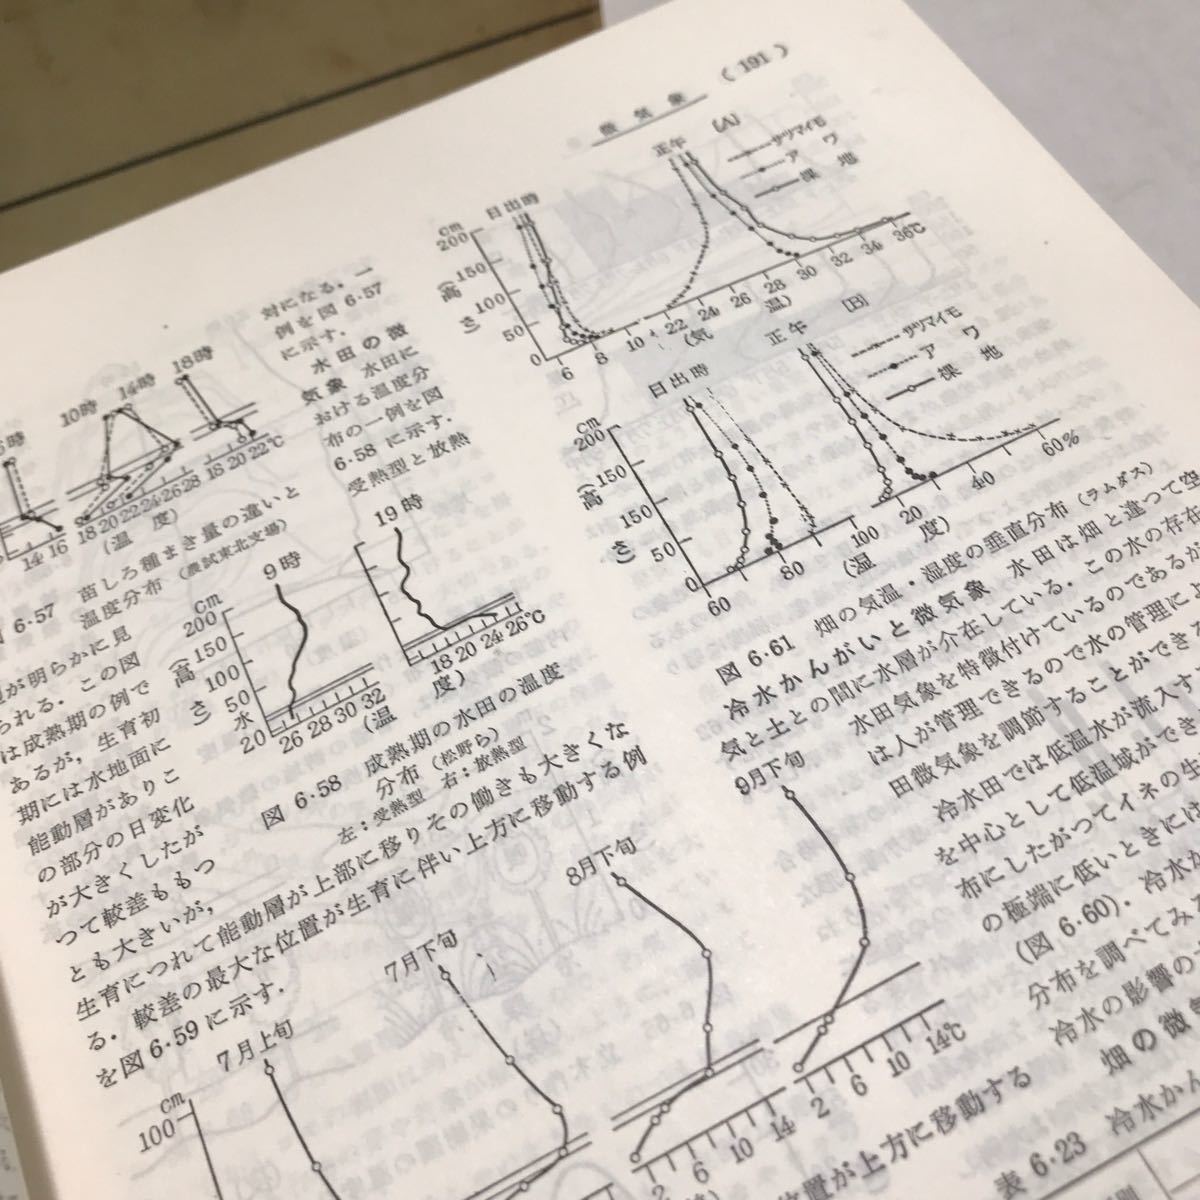 微気象
(191)
対になる．一
例を図 6・57
に示す．
水田の微
気象　水田に
おける温度分
布の一例を図
6・58 に示す．
受熱型と放熱
10時
14時
18時
18 20 22 24 26 28
18 20 22℃
14 16
(温度)
6・57　苗しろ種まき量の違いと
温度分布 (農試東北支場)
が明らかに見
られる．この図
は成熟期の例で
あるが，生育初
期には水地面に
能動層がありこ
の部分の日変化
が大きくしたが
つて較差ももつ
とも大きいが，
生育につれて能動層が上部に移りその働きも大きくな
る．較差の最大な位置が生育に伴い上方に移動する例
を図 6・59 に示す．
9時
19時
cm
200
150
100
50
水
20
(高さ)
26 28 30 32
18 20 22 24 26℃
(温度)
図 6・58　成熟期の水田の温度
分布 (松野ら)
左：受熱型　右：放熱型
7月上旬
7月下旬
8月下旬
9月下旬
cm
100
2 6 10 14
2 6 10 14℃
日出時
正午
[A]
サツマイモ
アワ
裸地
cm
200
150
100
50
0
(高さ)
6 8 10
22 24 26 28 30 32 34 36℃
(気温)
日出時
正午
[B]
サツマイモ
アワ
裸地
cm
200
150
150
50
0
(高さ)
60 80 100
20 40 60%
(湿度)
図 6・61　畑の気温・湿度の垂直分布 (ラムダス)
冷水かんがいと微気象　水田は畑と違つて空
気と土との間に水層が介在している．この水の存在
水田気象を特徴付けているのであるが
は人が管理できるので水の管理によ
田微気象を調節することができ
冷水田では低温水が流入す
を中心として低温域ができ
布にしたがつてイネの生
の極端に低いときには
(図 6・60)．冷水か
分布を調べてみ
冷水の影響の
畑の微
位置が上方に移動する
表 6・23　冷水か